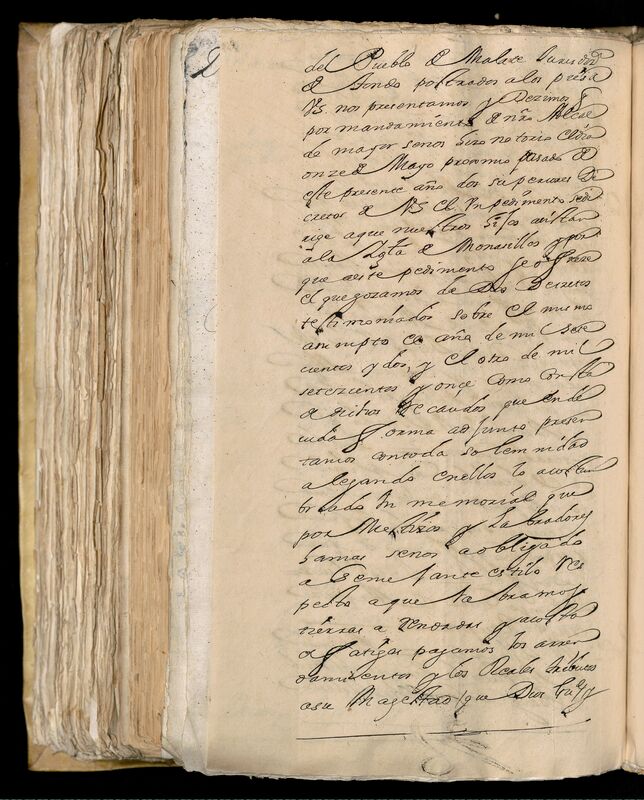 del Pueblo de Malate Jurisdⁿ
de Tondo postrados a los pies de
VS. nos presentamos y Dezimos q
por mandamiento de nrō Alcal
de mayor senos hizo notorio el dia
onze de Mayo proximo pasado de
este presente año dos superiores De
cretos de VS el Un pedimento se di
rige a que nuestros hijos asistan
à la Iglᵃ de Monasillos y por
que a este pedimento se ofreze
el que gozamos de Dos Decretos
testimoniados sobre el mismo
asumpto el año de mil sete
cientos y dos, y el otro de mil
setezientos y onze como consta
de dichos Recaudos que en de
vida forma adjunto presen
tamos con toda solemnidad
alegando en ellos lo acostum
brado Un memorial que
por Mestizos y Labradores
hamas senos a obligado
a Semejante estilo Res
pecto a que labramos
tierras arrendadas y a costa
de fatigas pagamos los arren
damientos y los Reales tributos
a su Magestad (que Dios Guᵉ) y